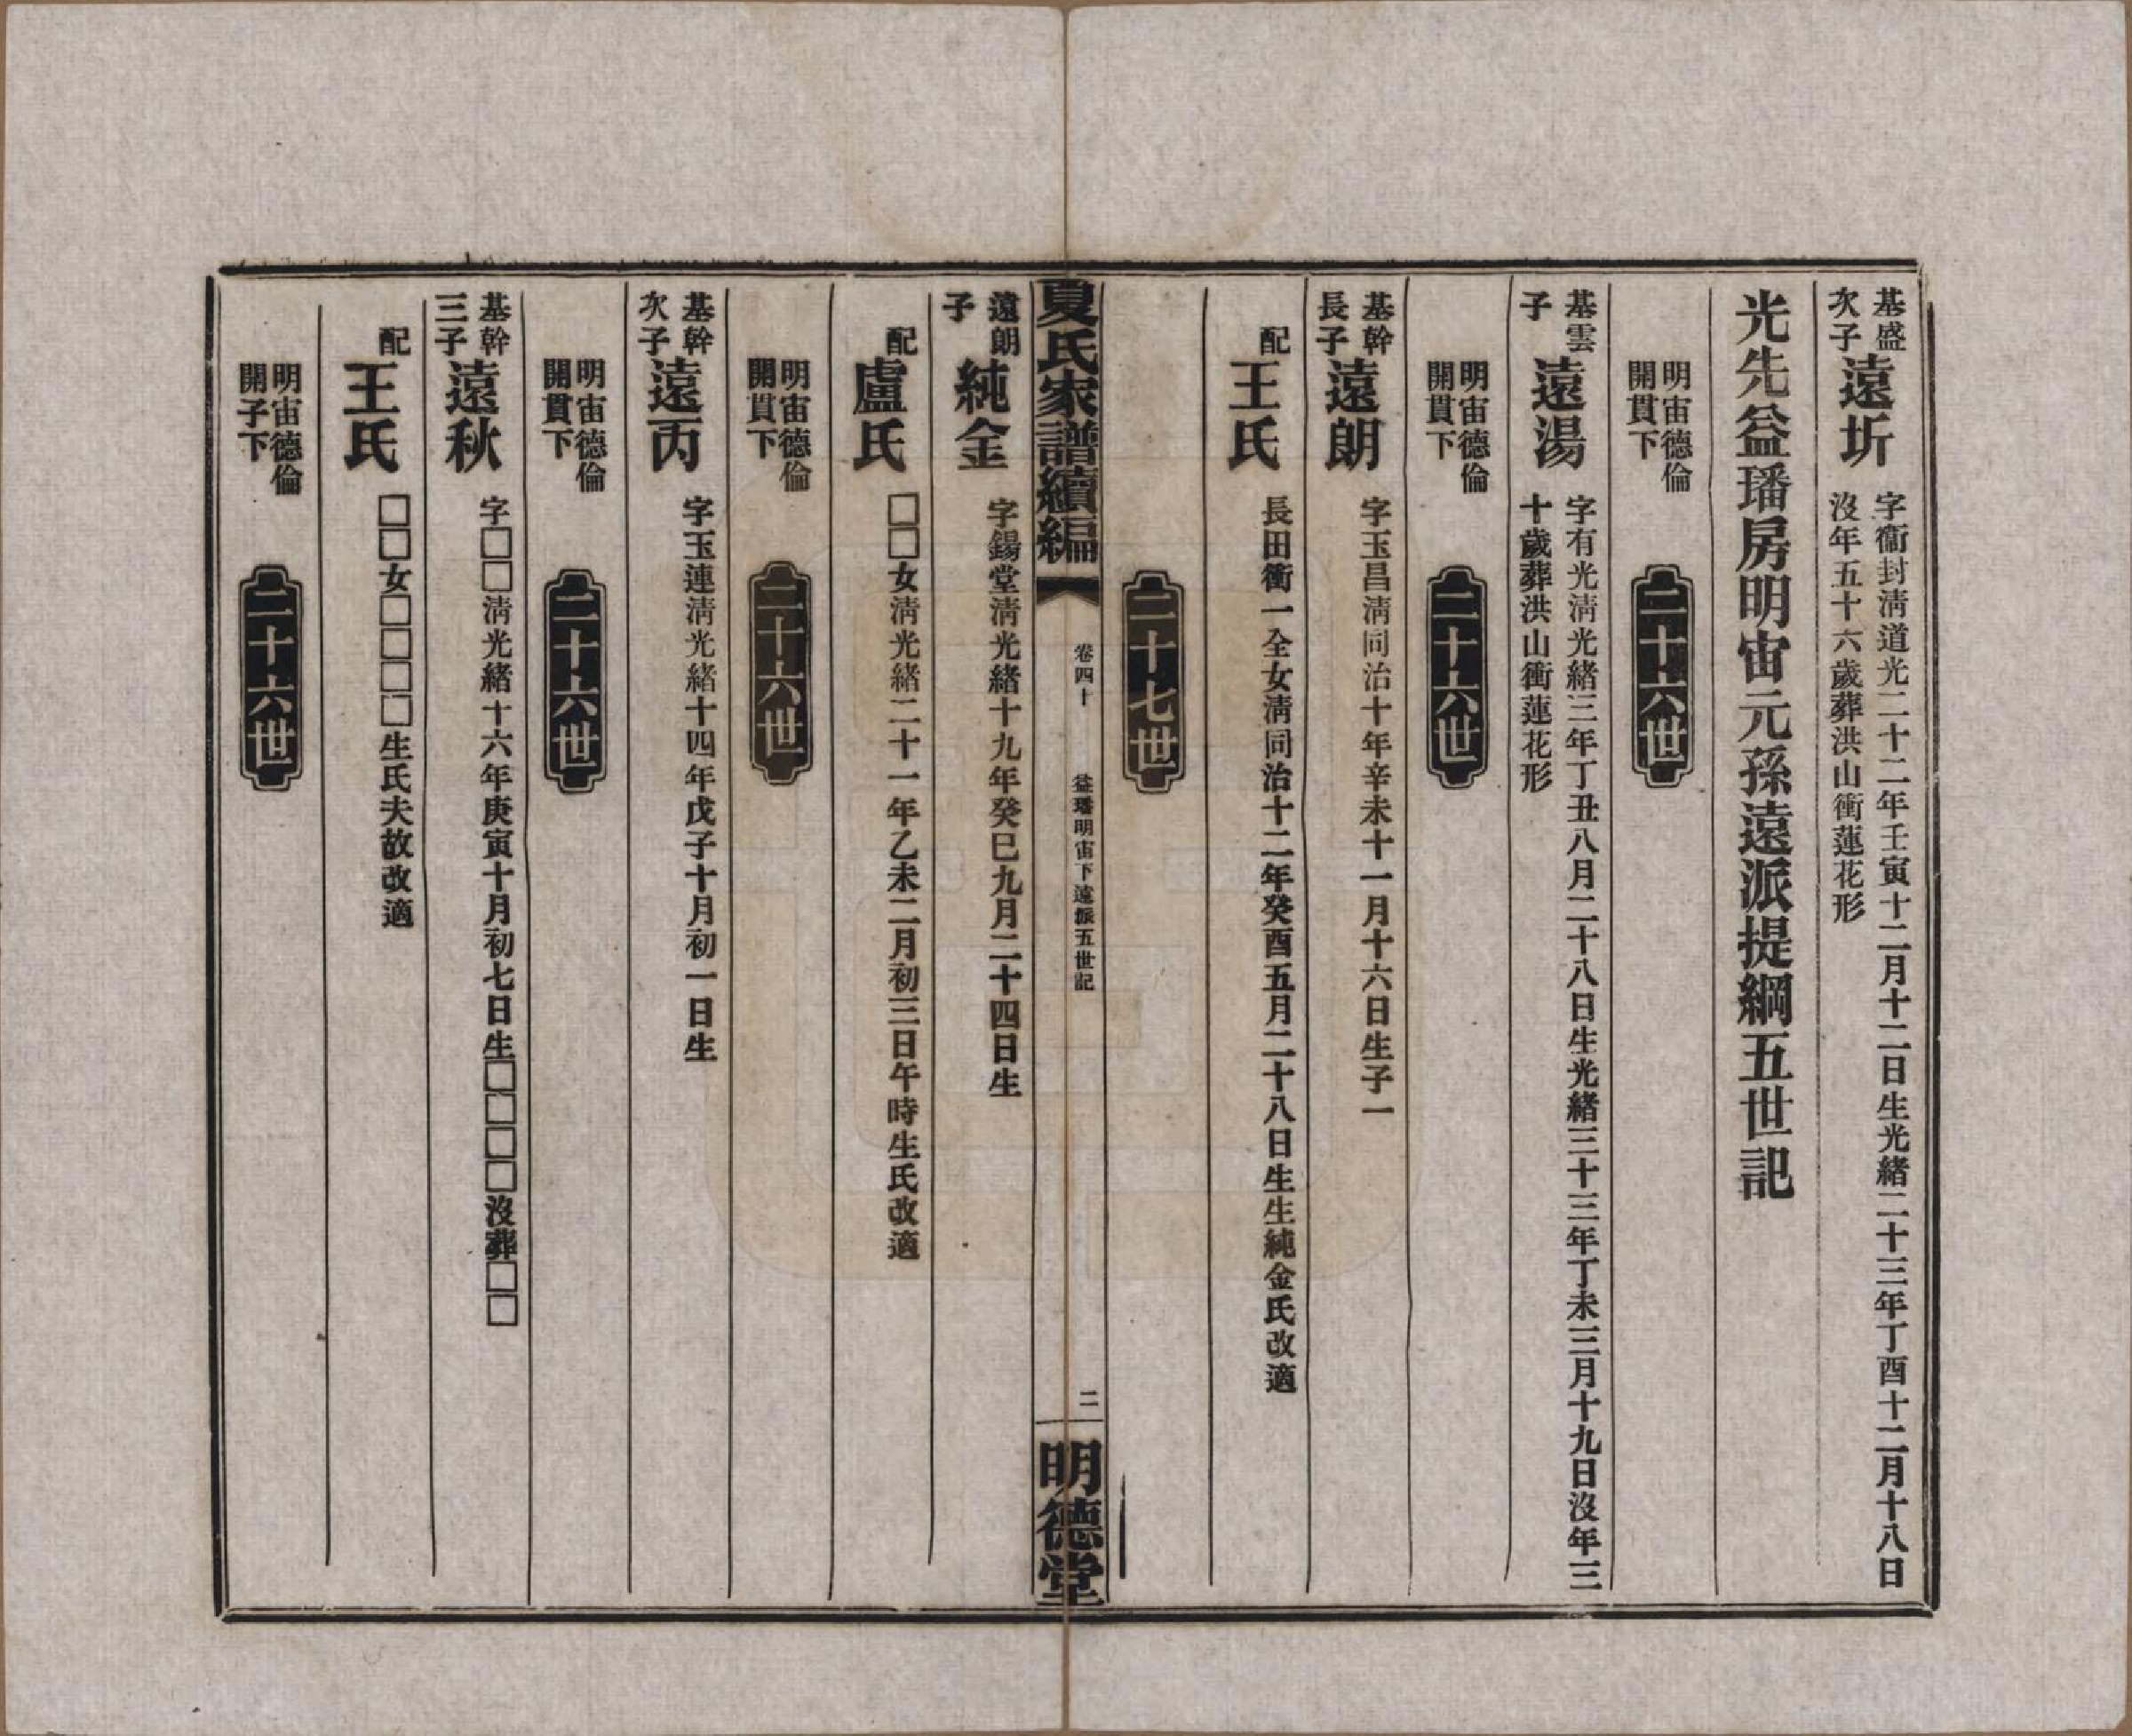 基盛次子 遠圻 字衞封淸道光二十二年壬寅十二月十二日生光緒二十三年丁酉十二月十八日
沒年五十六歲葬洪山衝蓮花形
光先益璠房明宙元孫遠派提綱五世記
明宙德倫開貫下 二十六世
基雲子 遠湯 字有光淸光緒三年丁丑八月二十八日生光緒三十三年丁未三月十九日沒年三
十歲葬洪山衝蓮花形
明宙德倫開貫下 二十六世
基幹長子 遠朗 字玉昌淸同治十年辛未十一月十六日生子一
配 王氏 長田衝一全女淸同治十二年癸酉五月二十八日生生純金氏改適
二十七世
夏氏家譜續編 卷四十 益璠明宙下遠派五世記 二 明德堂
遠朗子 純金 字錫堂淸光緒十九年癸巳九月二十四日生
配 盧氏 □□女淸光緒二十一年乙未二月初三日午時生氏改適
明宙德倫開貫下 二十六世
基幹次子 遠丙 字玉連淸光緒十四年戊子十月初一日生
明宙德倫開貫下 二十六世
基幹三子 遠秋 字□□淸光緒十六年庚寅十月初七日生□□□□沒葬□□
配 王氏 □□女□□□□生氏夫故改適
明宙德倫開子下 二十六世